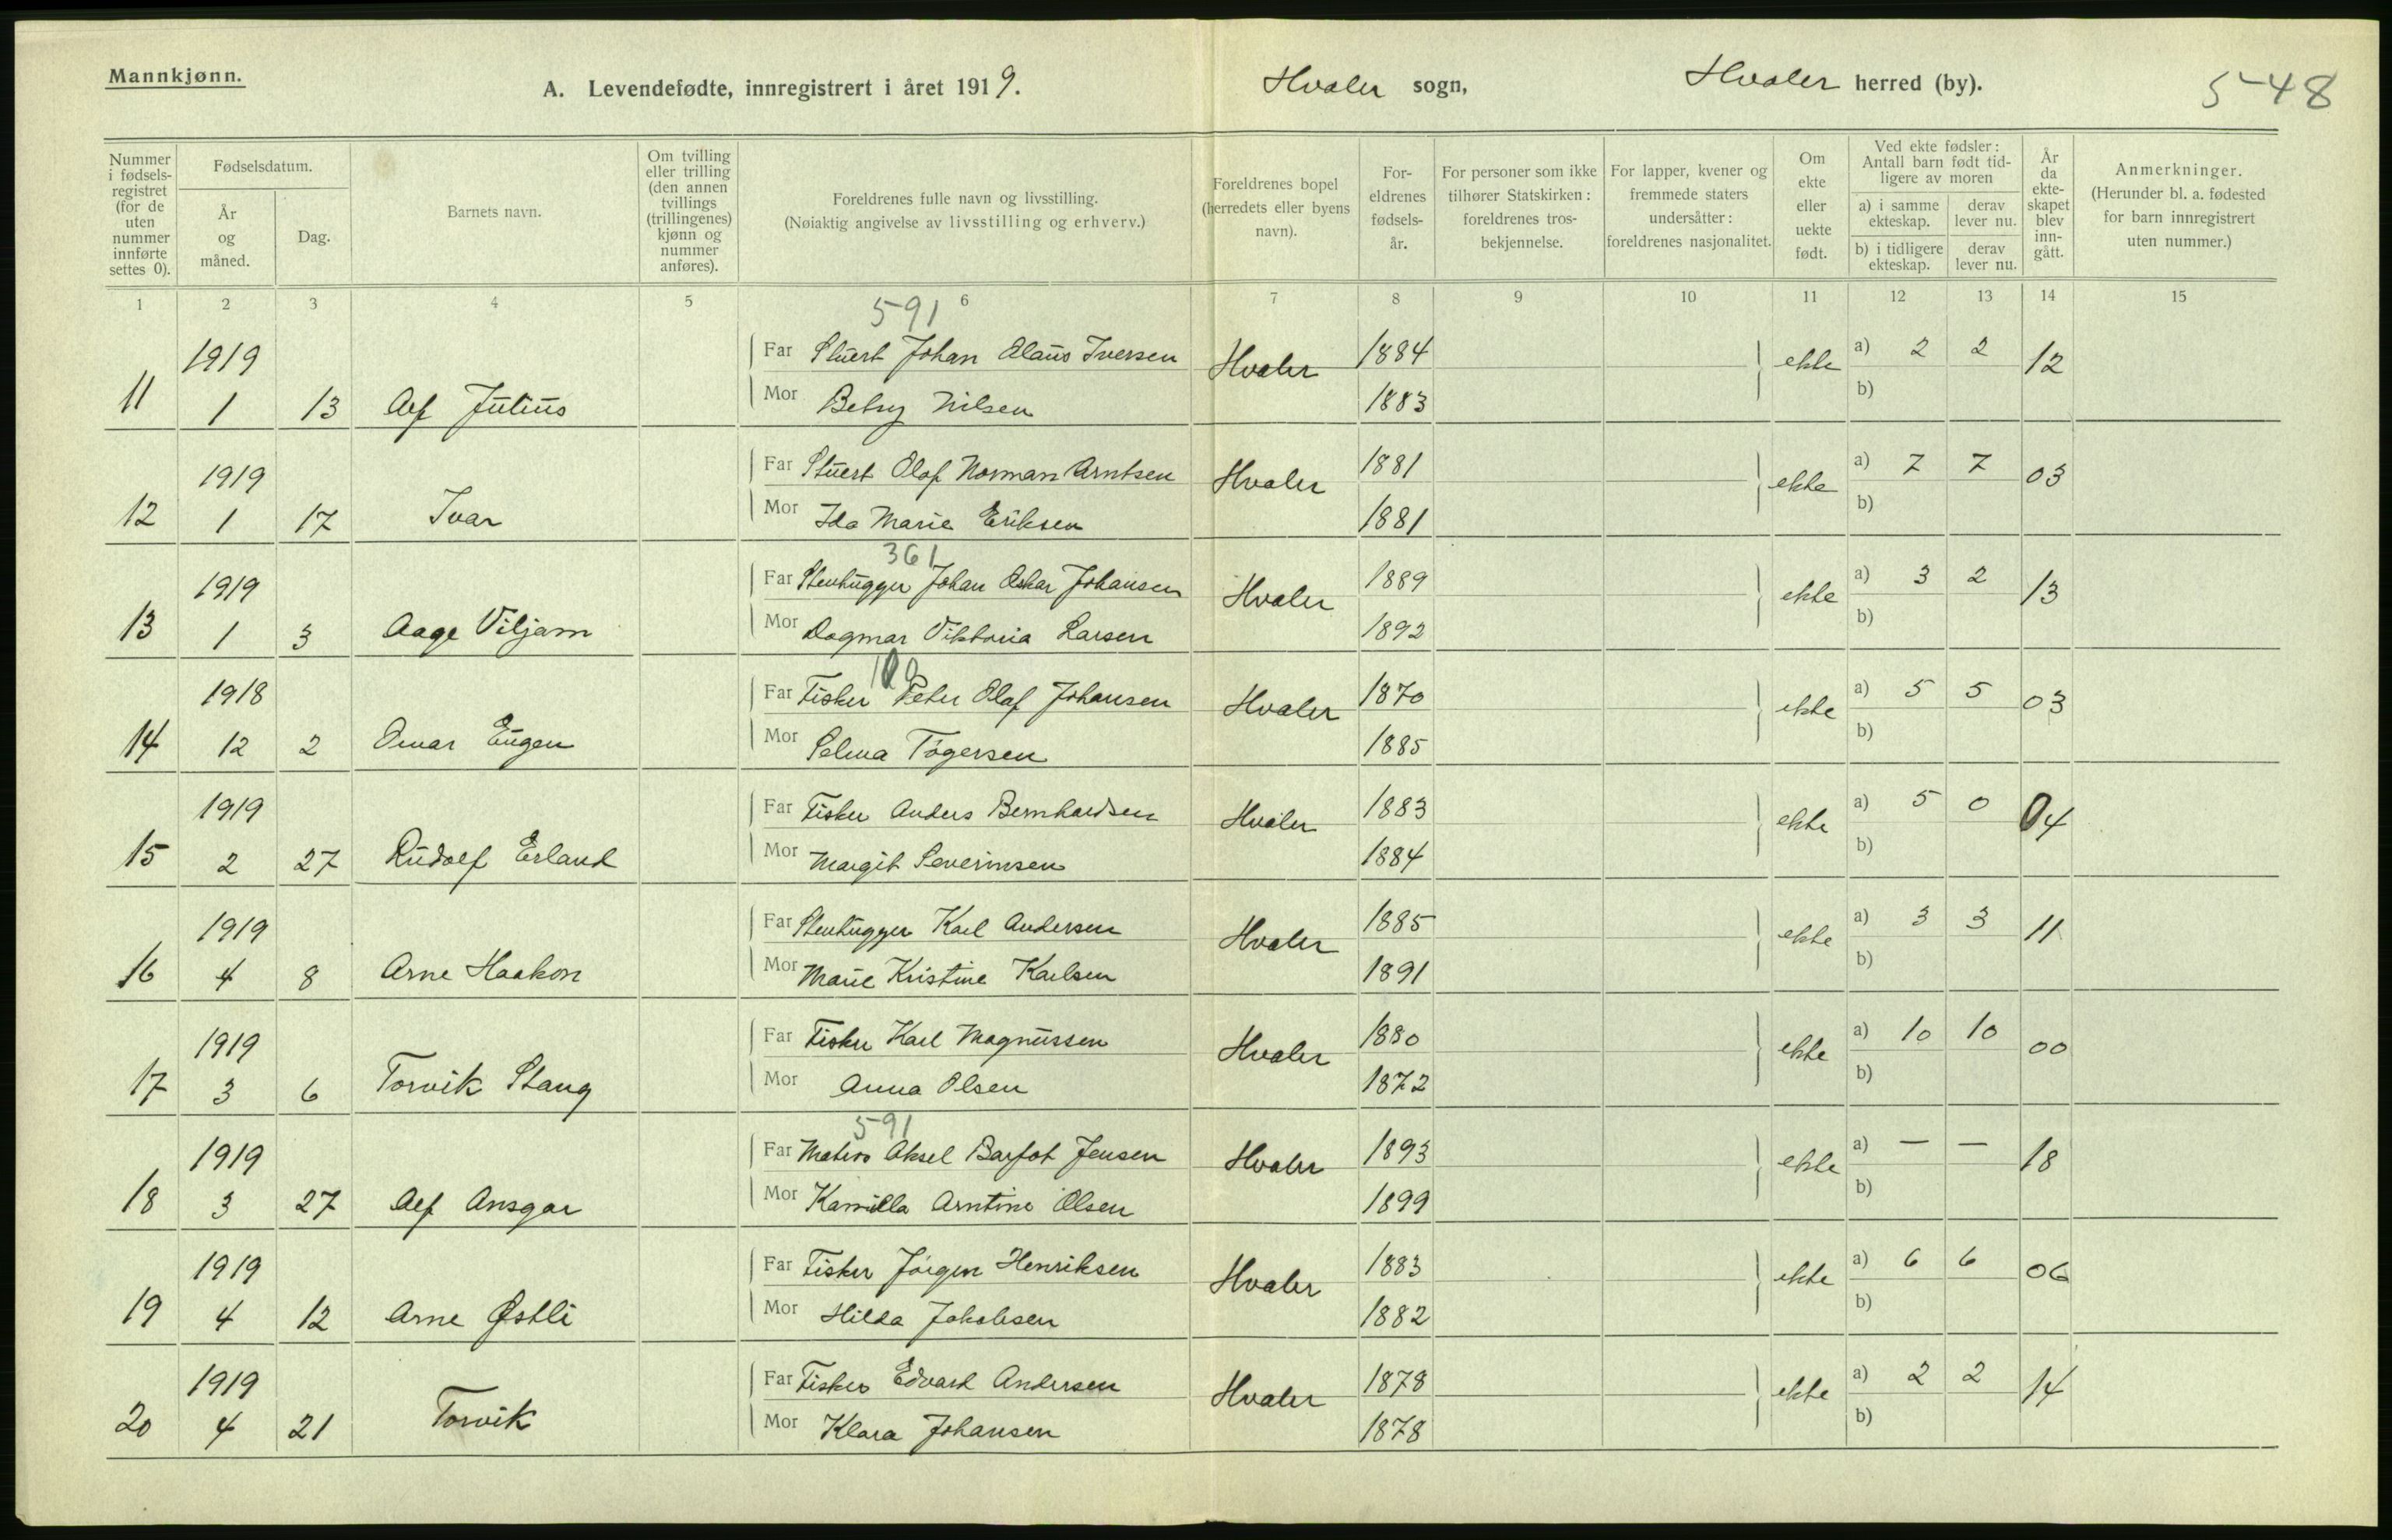 Mannkjønn.
A. Levendefødte, innregistrert i året 1919.
Hvaler sogn,
Hvaler herred (by).
548
Nummer i fødsels-registret (for de uten nummer innførte settes 0).
Fødselsdatum.
År og måned.
Dag.
Barnets navn.
Om tvilling eller trilling (den annen tvillings (trillingenes) kjønn og nummer anføres).
Foreldrenes fulle navn og livsstilling.
(Nøiaktig angivelse av livsstilling og erhverv.)
Foreldrenes bopel (herredets eller byens navn).
For-eldrenes fødsels-år.
For personer som ikke tilhører Statskirken: foreldrenes tros-bekjennelse.
For lapper, kvener og fremmede staters undersåtter: foreldrenes nasjonalitet.
Om ekte eller uekte født.
Ved ekte fødsler: Antall barn født tid-ligere av moren
a) i samme ekteskap. derav lever nu.
b) i tidligere ekteskap. derav lever nu.
År da ekte-skapet blev inn-gått.
Anmerkninger.
(Herunder bl. a. fødested for barn innregistrert uten nummer.)
1 2 3 4 5 6 7 8 9 10 11 12 13 14 15
591
1919 Far Stuert Johan Olaus Iversen Hvaler 1884 ekte a) 2 2 12
11 1 13 Alf Julius Mor Betsy Nilsen 1883 b)
1919 Far Stuert Olaf Norman Arntsen Hvaler 1881 ekte a) 7 7 03
12 1 17 Ivar Mor Ida Marie Eriksen 1881 b)
361
1919 Far Stenhugger Johan Oskar Johansen Hvaler 1889 ekte a) 3 2 13
13 1 3 Aage Viljam Mor Dagmar Viktoria Larsen 1892 b)
100
1918 Far Fisker Peter Olaf Johansen Hvaler 1870 ekte a) 5 5 03
14 12 2 Omar Eugen Mor Selma Tøgersen 1885 b)
1919 Far Fisker Anders Bernhardsen Hvaler 1883 ekte a) 5 0 04
15 2 27 Rudolf Erland Mor Margit Severinsen 1884 b)
1919 Far Stenhugger Karl Andersen Hvaler 1885 ekte a) 3 3 11
16 4 8 Arne Haakon Mor Marie Kristine Karlsen 1891 b)
1919 Far Fisker Karl Magnussen Hvaler 1880 ekte a) 10 10 00
17 3 6 Torvik Stang Mor Anna Olsen 1872 b)
591
1919 Far Matros Aksel Barfot Jensen Hvaler 1893 ekte a) — — 18
18 3 27 Alf Ansgar Mor Kamilla Arntine Olsen 1899 b)
1919 Far Fisker Jørgen Henriksen Hvaler 1883 ekte a) 6 6 06
19 4 12 Arne Østli Mor Hilda Jakobsen 1882 b)
1919 Far Fisker Edvard Andersen Hvaler 1878 ekte a) 2 2 14
20 4 21 Torvik Mor Klara Johansen 1878 b)